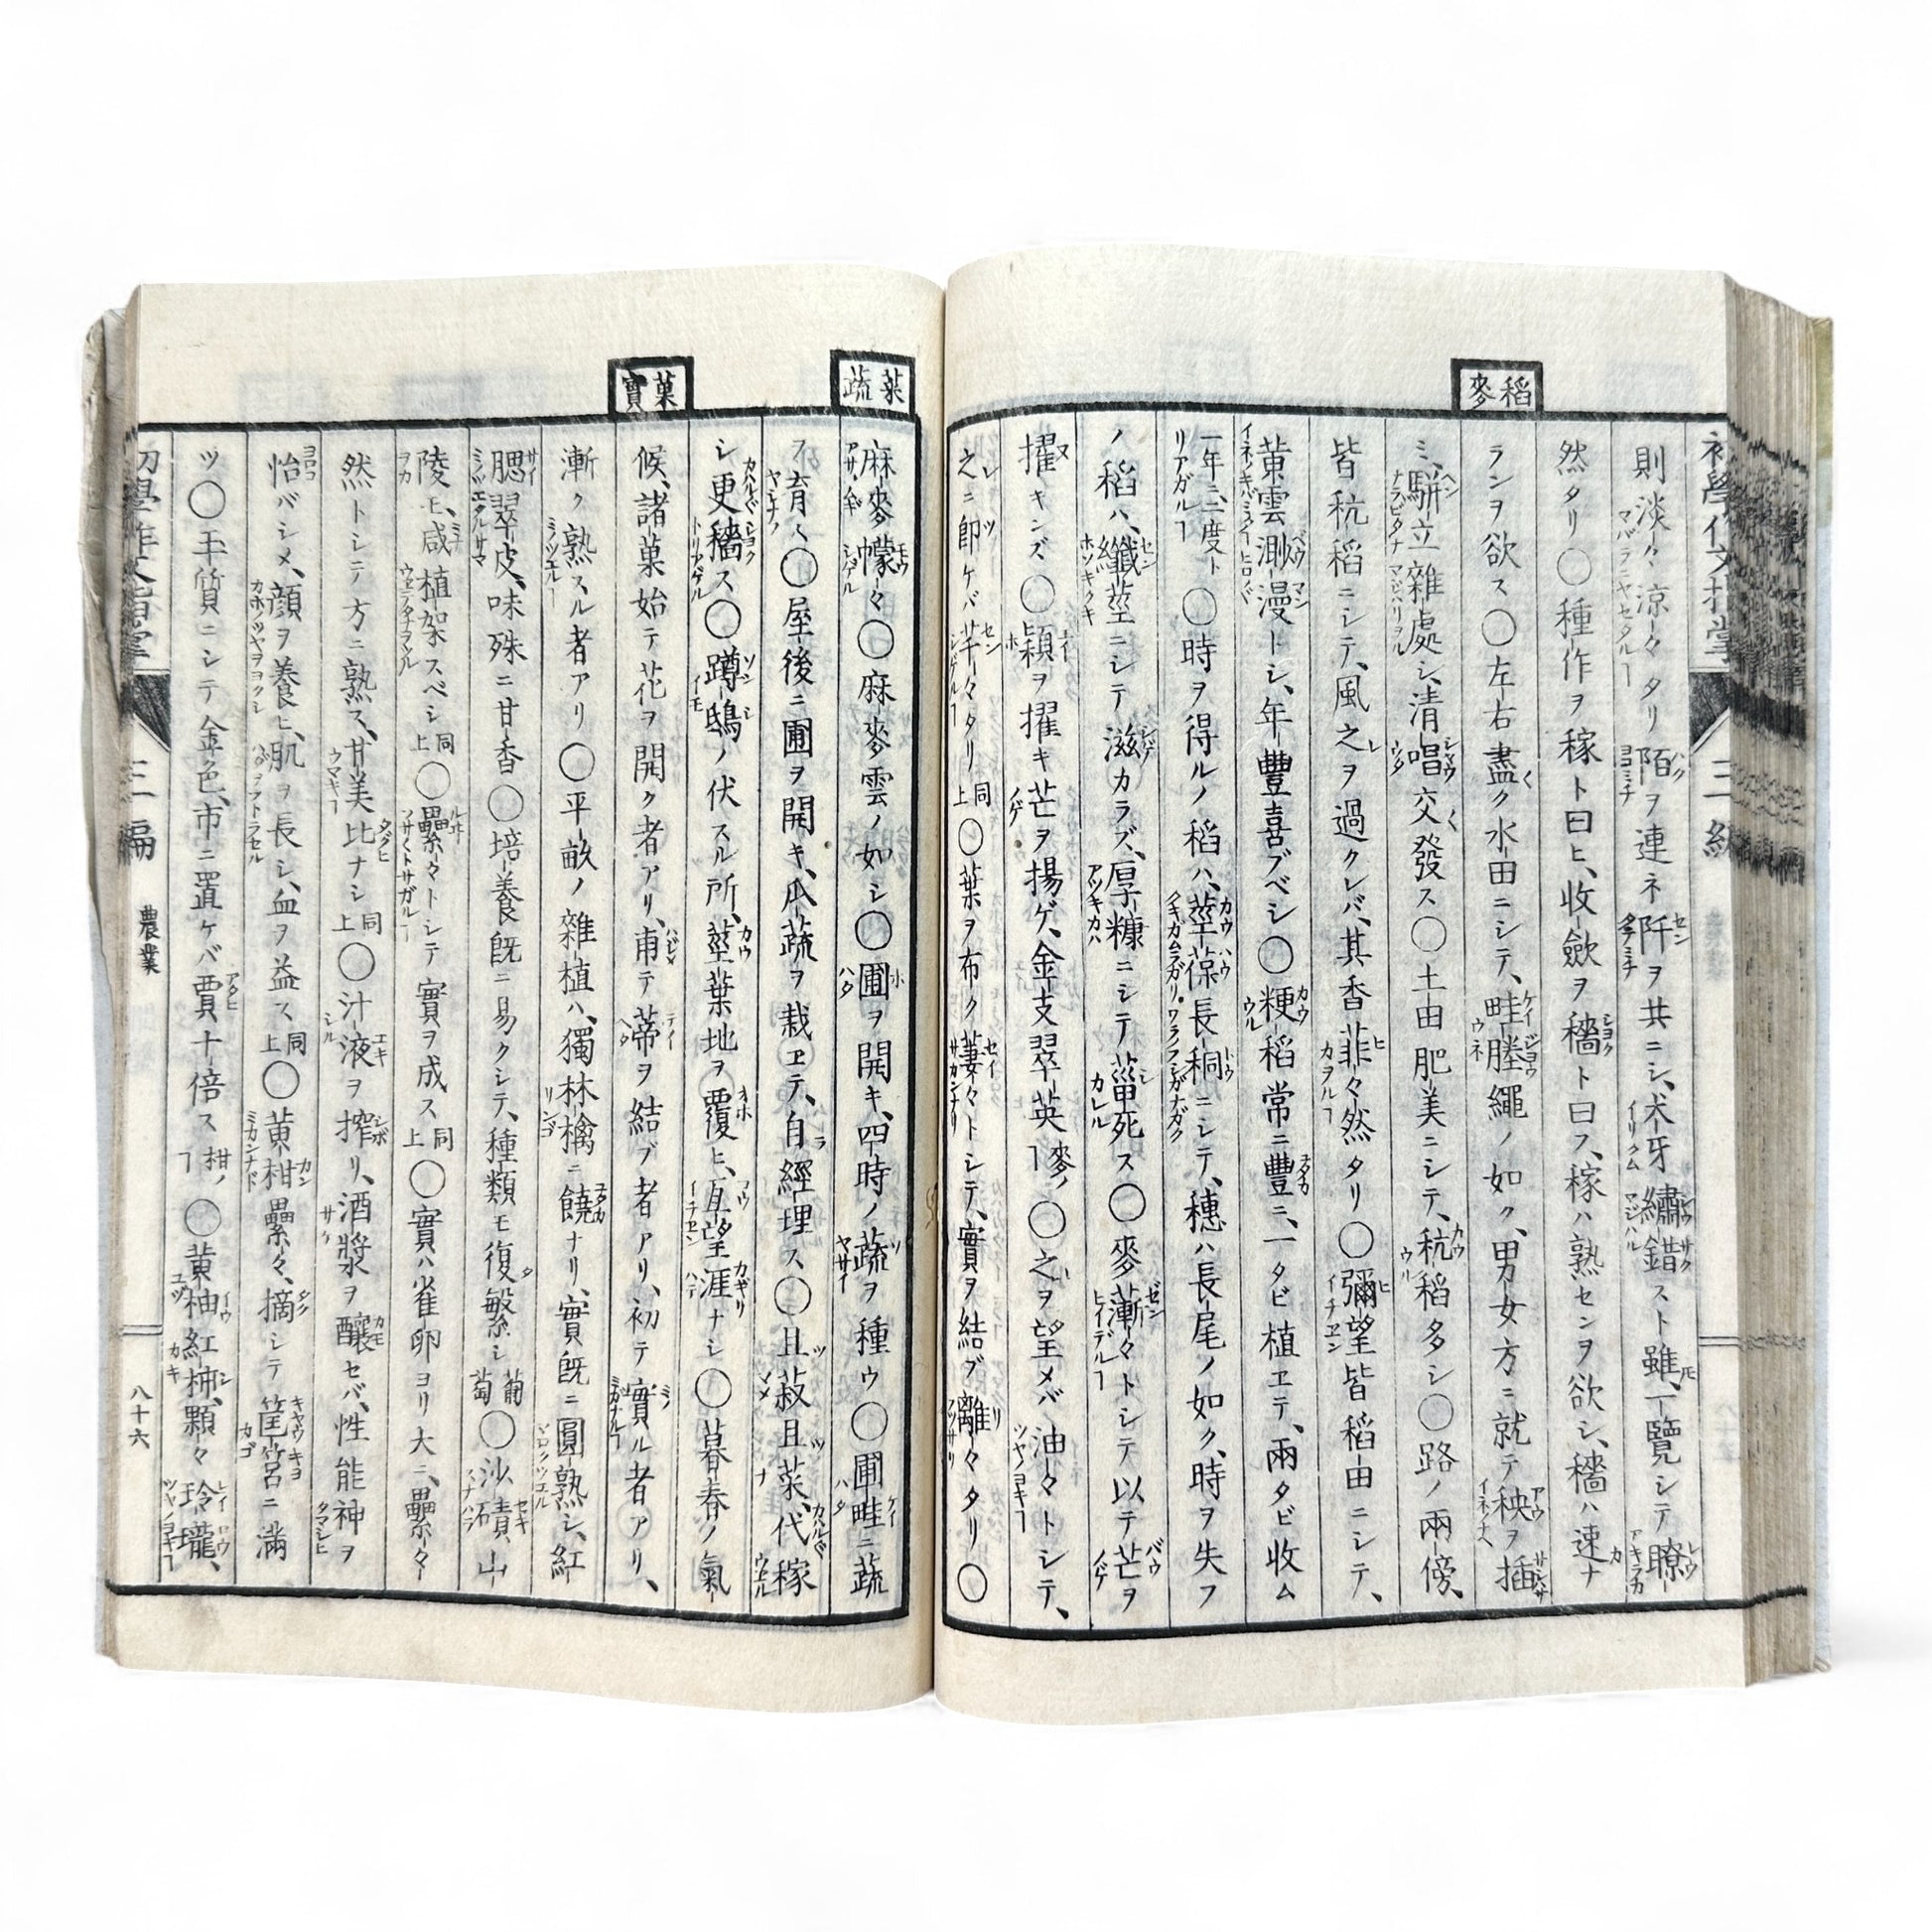 稻麥
則淡々涼々タリ陌ヲ連ネ阡ヲ共ニシ、犬牙繡錯スト雖、一覽シテ瞭
然タリ○種作ヲ稼ト曰ヒ、收歛ヲ穡ト曰ス、稼ハ熟センヲ欲シ、穡ハ速ナ
ランヲ欲ス○左右盡ク水田ニシテ、畦塍繩ノ如ク、男女方ニ就テ秧ヲ插
ミ、駢立雜處シ、清唱交發ス○土田肥美ニシテ、秔稻多シ○路ノ兩傍、
皆秔稻ニシテ、風之ヲ過クレバ、其香菲々然タリ○彌望皆稻田ニシテ、
黄雲渺漫トシ、年豐喜ブベシ○粳稻常ニ豐ニ、一タビ植ヱテ、兩タビ收ム
一年ニ二度ト○時ヲ得ルノ稻ハ、莖葆長稠ニシテ、穗ハ長尾ノ如ク、時ヲ失フ
ノ稻ハ、纖莖ニシテ滋カラズ、厚糠ニシテ菑死ス○麥漸々トシテ以テ芒ヲ
擢キンズ○穎ヲ擢キ芒ヲ揚ゲ、金支翠英麥ノ○之ヲ望メバ油々トシテ、
之ニ即ケバ芊々タリ同上○葉ヲ布ク萋々トシテ、實ヲ結ブ離々タリ○
初學作文指掌 三編
菜蔬
菓實
麻麥幪々○麻麥雲ノ如シ○圃ヲ開キ、四時ノ蔬ヲ種ウ○圃畦ニ蔬
ヲ育ク○屋後ニ圃ヲ開キ、瓜蔬ヲ栽ヱテ、自經理ス○且菽且菜、代稼
シ更穡ス○蹲鴟ノ伏スル所、莖葉地ヲ覆ヒ、亙望涯ナシ○暮春ノ氣
候、諸菓始テ花ヲ開ク者アリ、甫テ蒂ヲ結ブ者アリ、初テ實ル者アリ、
漸ク熟スル者アリ○平畝ノ雜植ハ、獨林檎ニ饒ナリ、實既ニ圓熟シ、紅
腮翠皮、味殊ニ甘香○培養既ニ易クシテ、種類モ復繁シ葡萄○沙磧、山
陵ヒ、咸植架スベシ同上○纍々トシテ實ヲ成ス同上○實ハ雀卵ヨリ大ニ、纍々
然トシテ方ニ熟ス、甘美比ナシ同上○汁液ヲ搾リ、酒漿ヲ釀セバ、性能神ヲ
怡バシメ、顔ヲ養ヒ、肌ヲ長シ、血ヲ益ス同上○黄柑纍々、摘シテ筐筥ニ滿
ツ○玉質ニシテ金色、市ニ置ケバ賈十倍ス柑ノ○黄柚紅柿、顆々玲瓏、
初學作文指掌 三編 農業 八十六